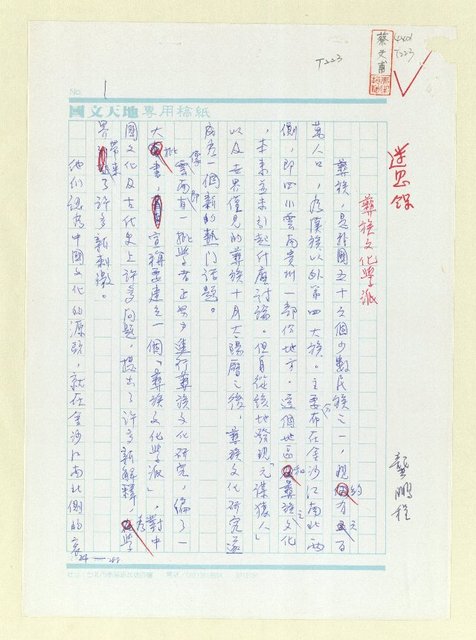 T223
4201
T223
蔡文甫
No. 1
國文天地專用稿紙
迷思錄
彝族文化學派
龔鵬程
彝族，是我國五十五個少數民族之一，現約有五百
萬人口，為漢族以外第四大族。主要分布在金沙江南北兩
側，即四川雲南貴州一部份地方。這個地區和彝族之文化
，本來並未引起什麼討論。但自從該地發現「元謀猿人」
以及世界僅見的彝族十月太陽曆之後，彝族文化研究遂
成為一個新的熱門話題。
像雲南即有一批學者正努力進行彝族文化研究，編了一
大批書，宣稱要建立一個「彝族文化學派」，對中
國文化及古代史上許多問題，提出了許多新解釋，為學
界帶來了許多新刺激。
他們認為中國文化的源頭，就在金沙江南北側的哀